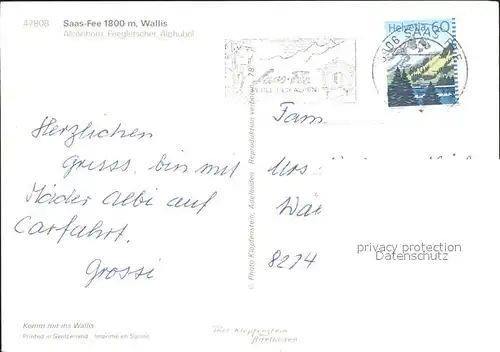 47808
Saas-Fee 1800 m, Wallis
Allalinhorn, Feegletscher, Alphubel
Helvetia 60
Saas-Fee
Herzlichen
Gruss. bin mit
Mäder Albi auf
Carfahrt.
Grossi
© Photo Klopfenstein, Adelboden Reproduktion verboten
Fam.
Urs
8274
privacy protection
veryimportantlot
Komm mit ins Wallis
Printed in Switzerland Imprimé en Suisse
Photo Klopfenstein
Adelboden